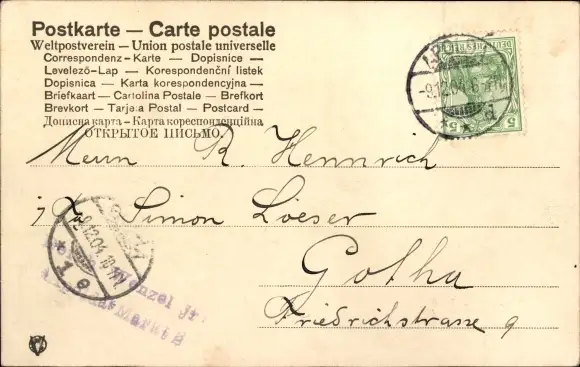 Postkarte — Carte postale
Weltpostverein — Union postale universelle
Correspondenz-Karte — Dopisnice —
Levelező-Lap — Korespondenční listek
Dopisnica — Karta korespondencyjna —
Briefkaart — Cartolina Postale — Brefkort
Brevkort — Tarjeta Postal — Postcard —
Дописна карта — Карта кореспонденцiйна
ОТКРЫТОЕ ПИСЬМО.
R. Hennrich
Simon Löeser
Gotha
Friedrichstrasse 9
9.12.04
5 5
9.12.04
* 1 e
Wenzel jr.
Markt 8